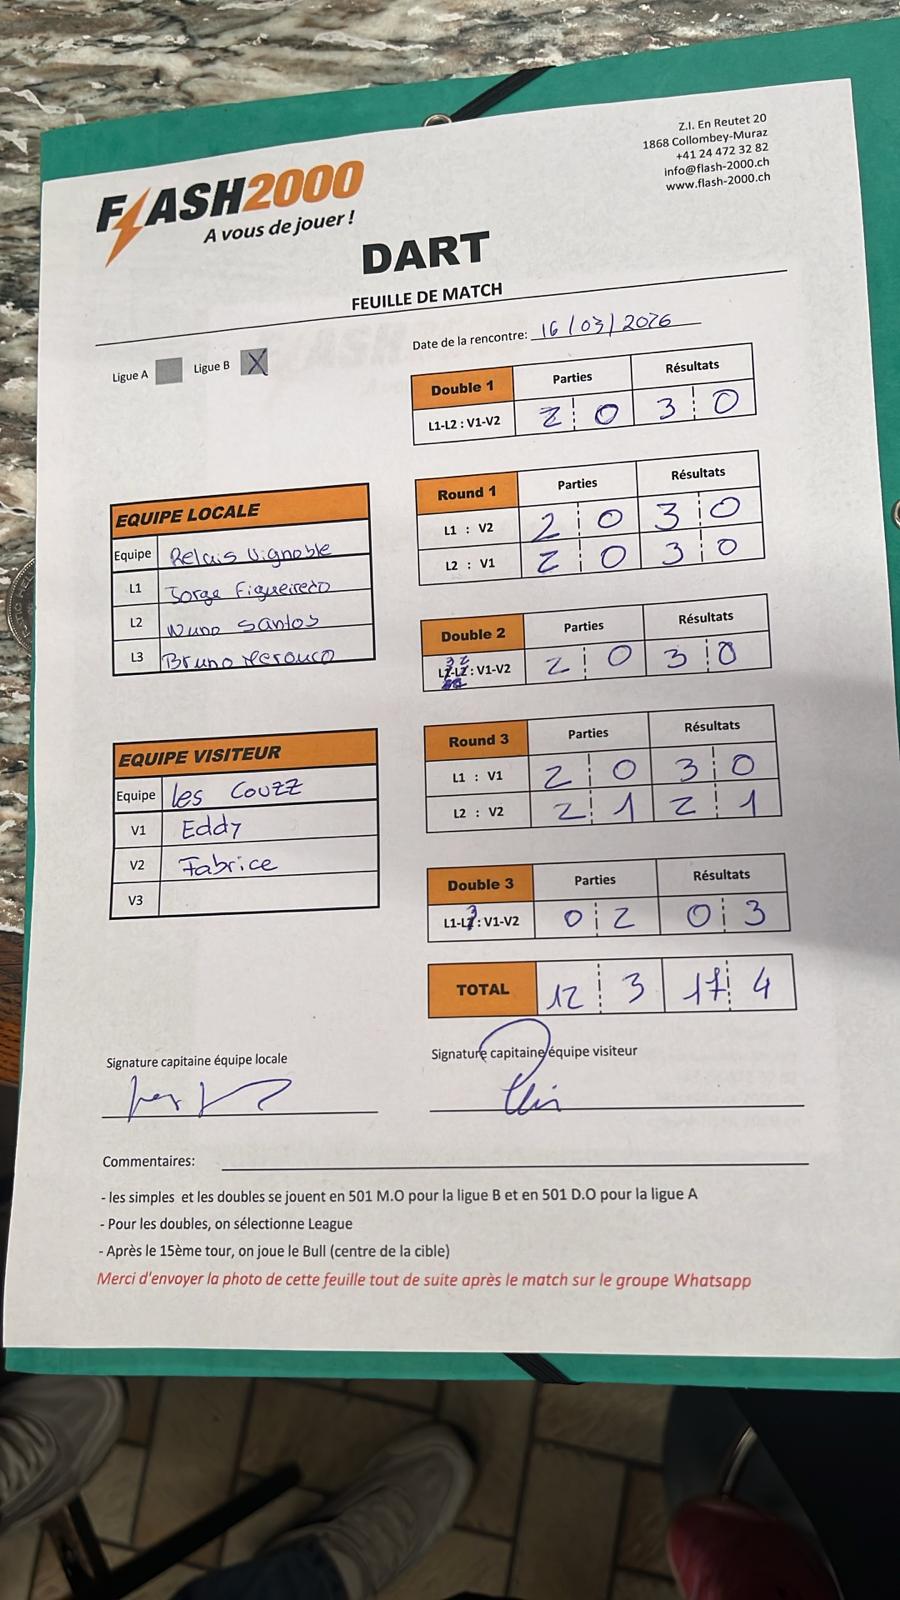 Z.I. En Reutet 20
1868 Collombey-Muraz
+41 24 472 32 82
info@flash-2000.ch
www.flash-2000.ch
FLASH2000
A vous de jouer !
DART
FEUILLE DE MATCH
Ligue A Ligue B X
Date de la rencontre: 16/03/2026
Double 1 Parties Résultats
L1-L2 : V1-V2 2 0 3 0
Round 1 Parties Résultats
L1 : V2 2 0 3 0
L2 : V1 2 0 3 0
EQUIPE LOCALE
Equipe Relais Vignoble
L1 Jorge Figueiredo
L2 Nuno Santos
L3 Bruno
Double 2 Parties Résultats
L3-L2 : V1-V2 2 0 3 0
Round 3 Parties Résultats
L1 : V1 2 0 3 0
L2 : V2 2 1 2 1
EQUIPE VISITEUR
Equipe les Couzz
V1 Eddy
V2 Fabrice
V3
Double 3 Parties Résultats
L1-L3 : V1-V2 0 2 0 3
TOTAL 12 3 17 4
Signature capitaine équipe locale
Signature capitaine équipe visiteur
Commentaires:
- les simples et les doubles se jouent en 501 M.O pour la ligue B et en 501 D.O pour la ligue A
- Pour les doubles, on sélectionne League
- Après le 15ème tour, on joue le Bull (centre de la cible)
Merci d'envoyer la photo de cette feuille tout de suite après le match sur le groupe Whatsapp